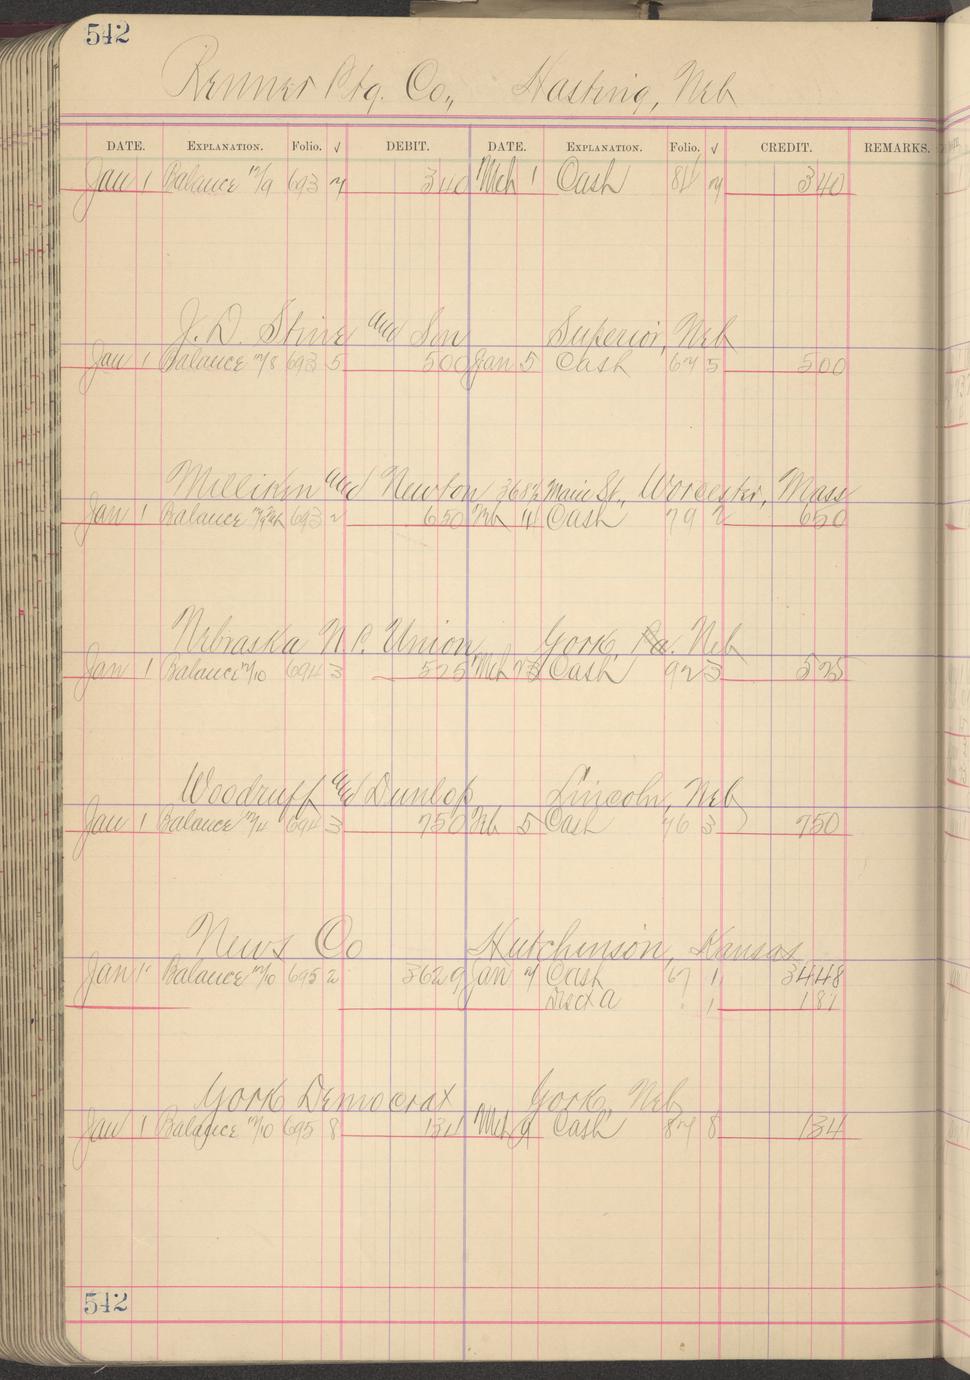 542
Renner Ptg. Co., Hasting, Neb
DATE. EXPLANATION. Folio. √ DEBIT. DATE. EXPLANATION. Folio. √ CREDIT. REMARKS.
Jan 1 Balance 12/9 693 7 340 Mch 1 Cash 81 7 340
J. D. Stine and Son Superior, Neb
Jan 1 Balance 12/8 693 5 500 Jan 5 Cash 67 5 500
Milliken and Newton 368½ Main St., Worcester, Mass
Jan 1 Balance 693 2 650 Feb 11 Cash 79 2 650
Nebraska N. P. Union York, Pa. Neb
Jan 1 Balance 12/10 694 3 525 Mch 23 Cash 92 3 525
Woodruff and Dunlop Lincoln, Neb
Jan 1 Balance 12/4 694 3 750 Feb 5 Cash 76 3 750
News Co Hutchinson, Kansas
Jan 1 Balance 12/10 695 2 3629 Jan 7 Cash 67 1 3448
1 181
York Democrat York, Neb
Jan 1 Balance 12/10 695 8 134 Mch 9 Cash 87 8 134
542